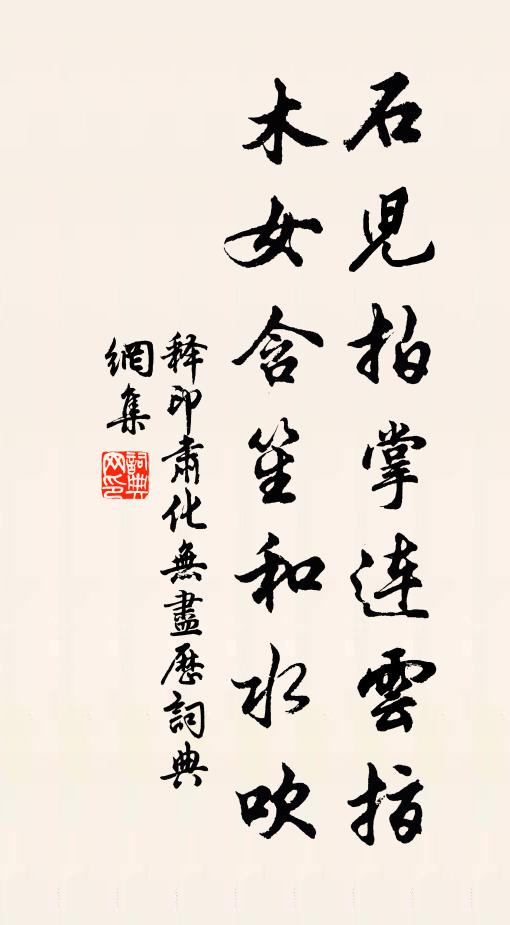 石児拍掌連雲指
木女含笙和水吹
释印肅化無盡歷詞典
網集
詞典
网印